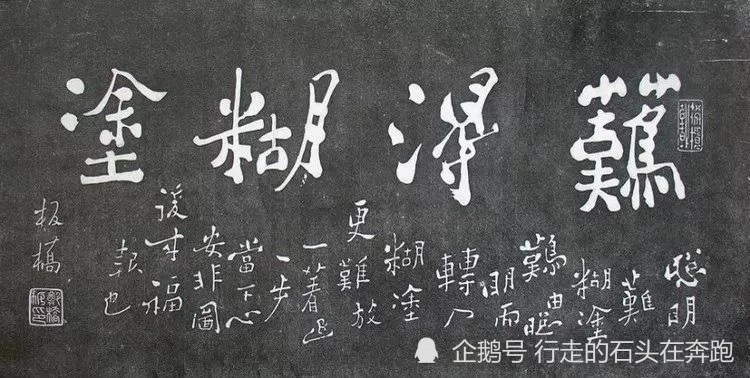 難得糊塗
聰明
難
糊塗
難由聰
明而
轉入
糊塗
更難放
一著退
一步
當下心
安非圖
後來福
報也
板橋
企鹅号 行走的石头在奔跑